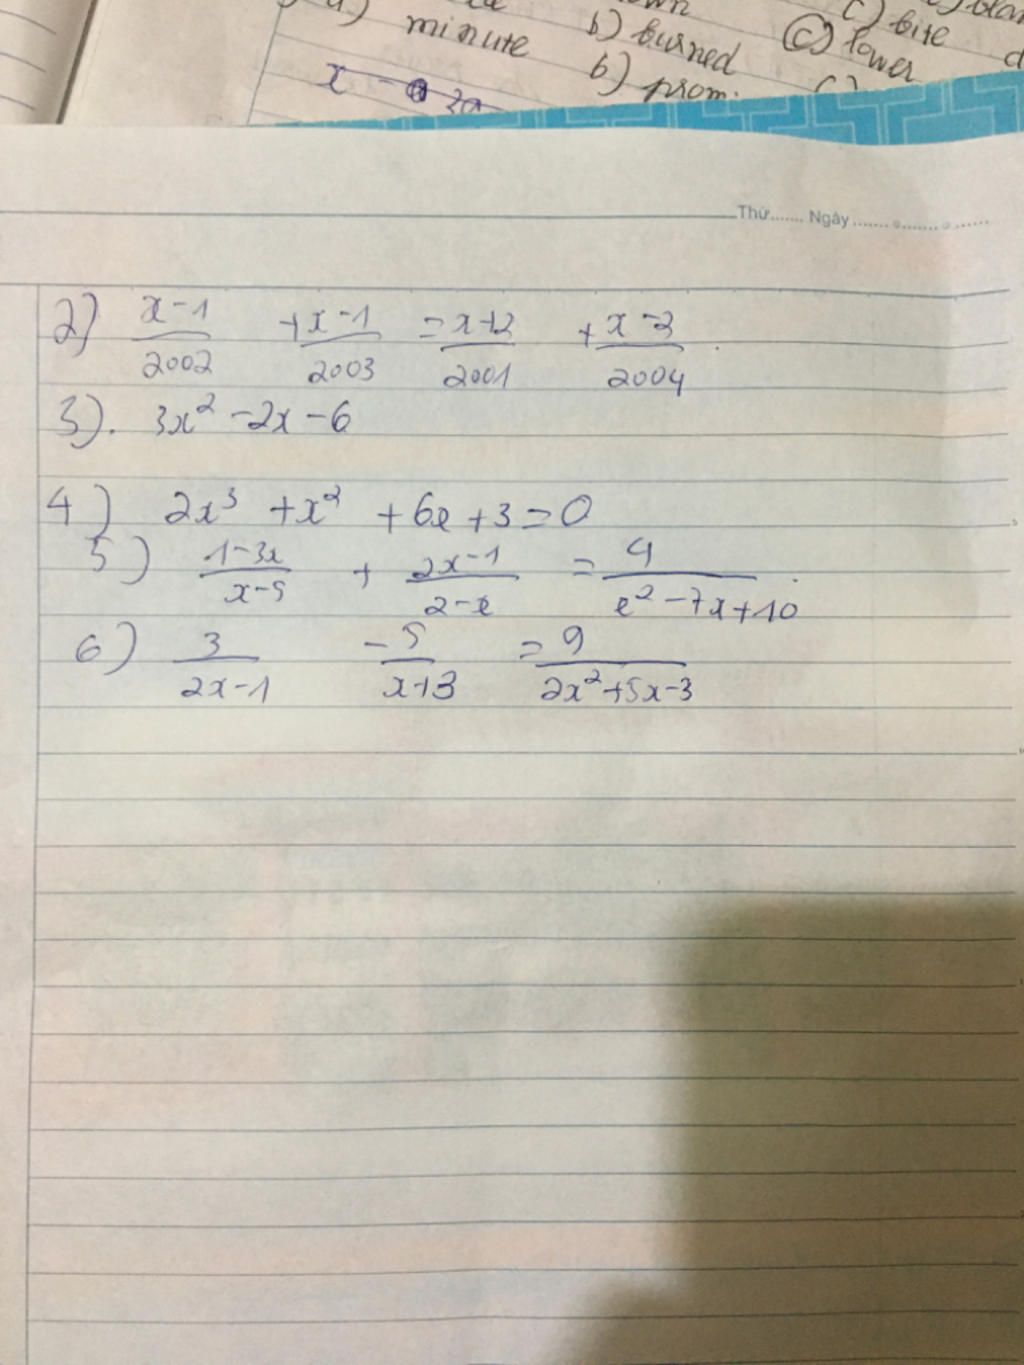 a) minute b) burned c) lower
c) bite
b) prom
x - 2a
Thứ....... Ngày.......
2) x-1/2002 + x-1/2003 = x+2/2001 + x-2/2004.
3). 3x² -2x -6
4) 2x³ + x² + 6x + 3 = 0
5) 1-3x/x-5 + 2x-1/2-x = 4/x²-7x+10.
6) 3/2x-1 - 5/x+3 = 9/2x²+5x-3